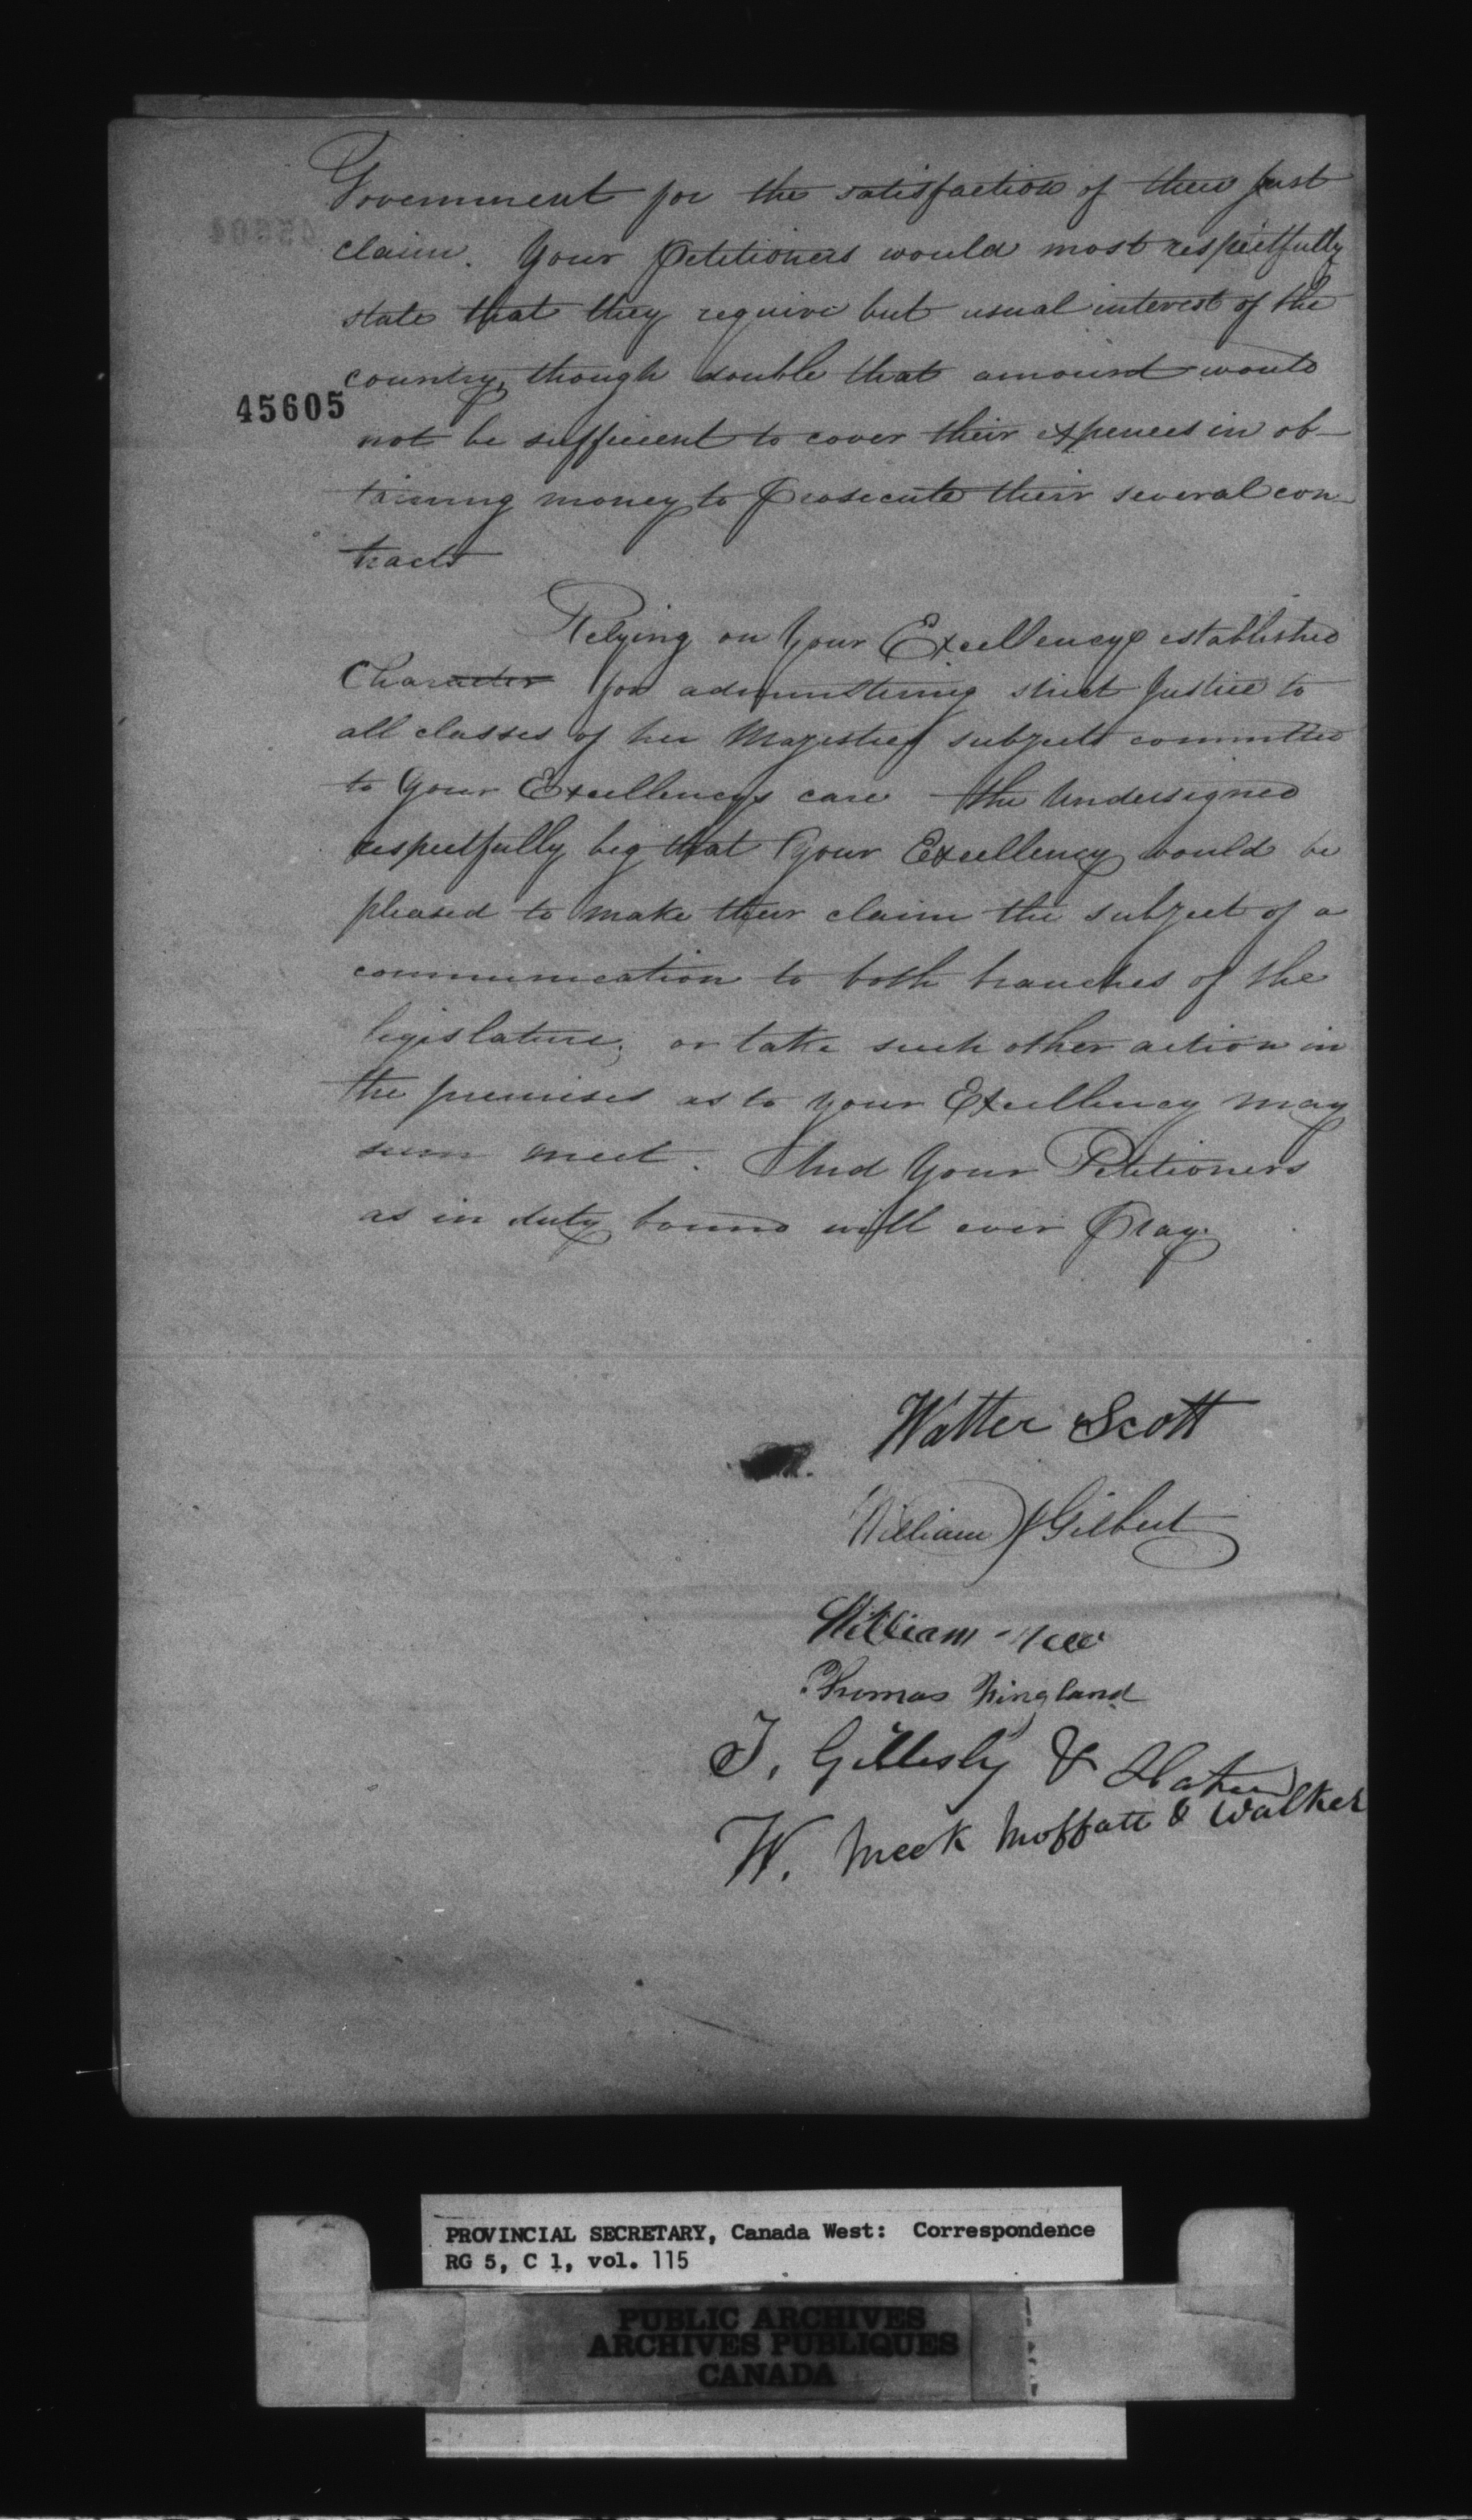 Government for the satisfaction of their just
claim. Your Petitioners would most respectfully
state that they require but usual interest of the
country, though double that amount would
45605
not be sufficient to cover their expences in ob-
taining money to Prosecute their several con-
tracts
Relying on Your Excellencys established
Character for administering strict Justice to
all classes of her Majesties subjects committed
to Your Excellencys care the Undersigned
respectfully beg that Your Excellency would be
pleased to make their claim the subject of a
communication to both branches of the
legislature, or take such other action in
the premises as to your Excellency may
seem meet. And Your Petitioners
as in duty bound will ever Pray.
Walter Scott
William Gilbert
William
Thomas Kingland
J. Gillesly &
W. Meek Moffatt & Walker
PROVINCIAL SECRETARY, Canada West: Correspondence
RG 5, C 1, vol. 115
PUBLIC ARCHIVES
ARCHIVES PUBLIQUES
CANADA